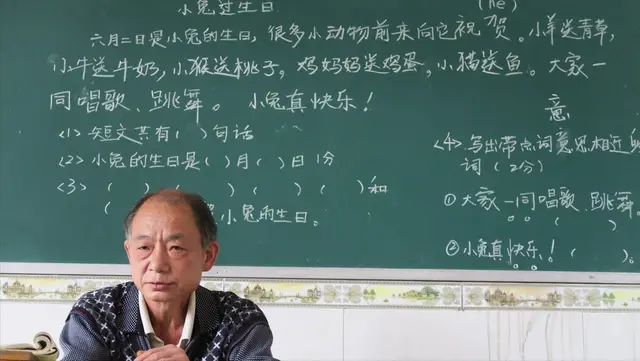 小兔过生日
(he)
六月二日是小兔的生日,很多小动物前来向它祝贺。小羊送青草,
小牛送牛奶,小猴送桃子,鸡妈妈送鸡蛋,小猫送鱼。大家一
同唱歌、跳舞。 小兔真快乐!
<1> 短文共有( )句话
<2> 小兔的生日是( )月( )日 1分
<3> ( ) ( ) ( ) ( )和
( 小兔的生日。
意
<4> 写出带点词意思相近的
词(2分)
① 大家一同唱歌、跳舞。
( )
② 小兔真快乐!( )。